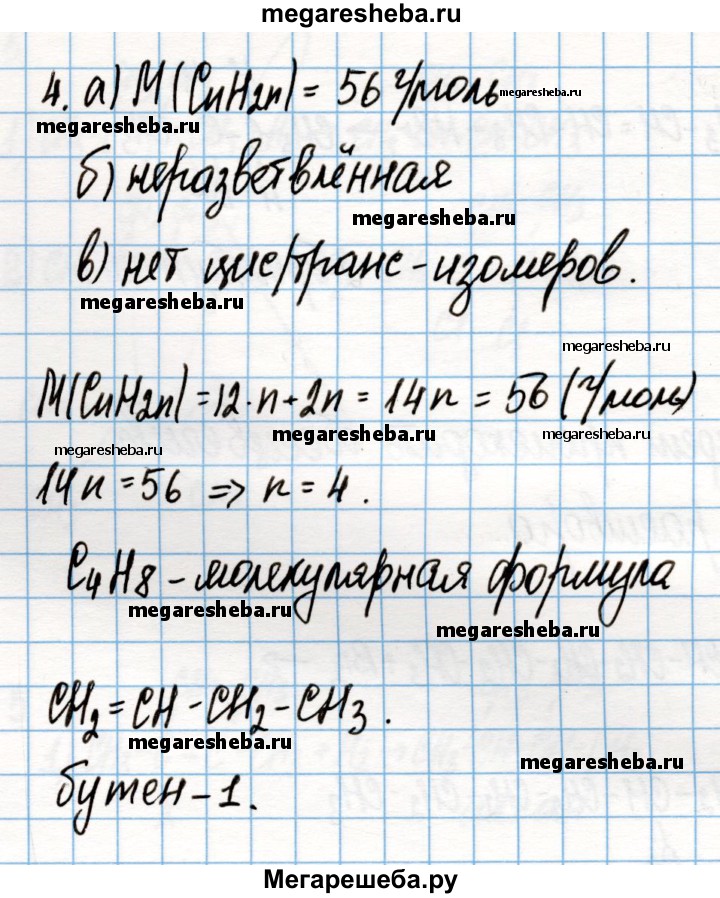 megaresheba.ru
4. а) M(CnH2n) = 56 г/моль
megaresheba.ru
megaresheba.ru
б) неразветвлённая
megaresheba.ru
в) нет цис/транс-изомеров.
megaresheba.ru
megaresheba.ru
M(CnH2n) = 12·n+2n = 14n = 56 (г/моль)
megaresheba.ru
megaresheba.ru
megaresheba.ru
14n = 56 => n = 4.
C4H8 - молекулярная формула
megaresheba.ru
megaresheba.ru
CH2=CH-CH2-CH3.
megaresheba.ru
megaresheba.ru
бутен-1.
Мегарешеба.ру